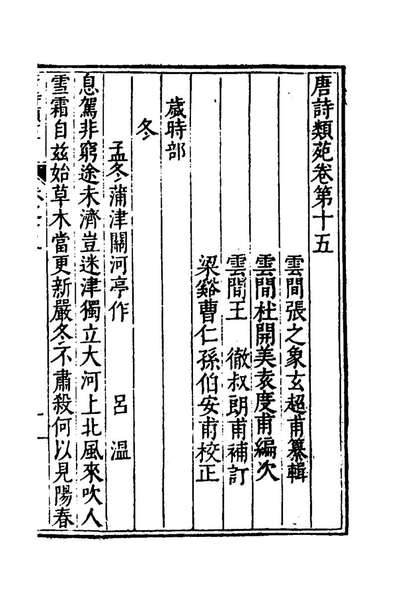 唐詩類苑卷第十五
雲間張之象玄超甫纂輯
雲間杜開美袁度甫編次
雲間王　徹叔朗甫補訂
梁谿曹仁孫伯安甫校正
歲時部
冬
孟冬蒲津關河亭作　　呂溫
息駕非窮途未濟豈迷津獨立大河上北風來吹人
雪霜自茲始草木當更新嚴冬不肅殺何以見陽春